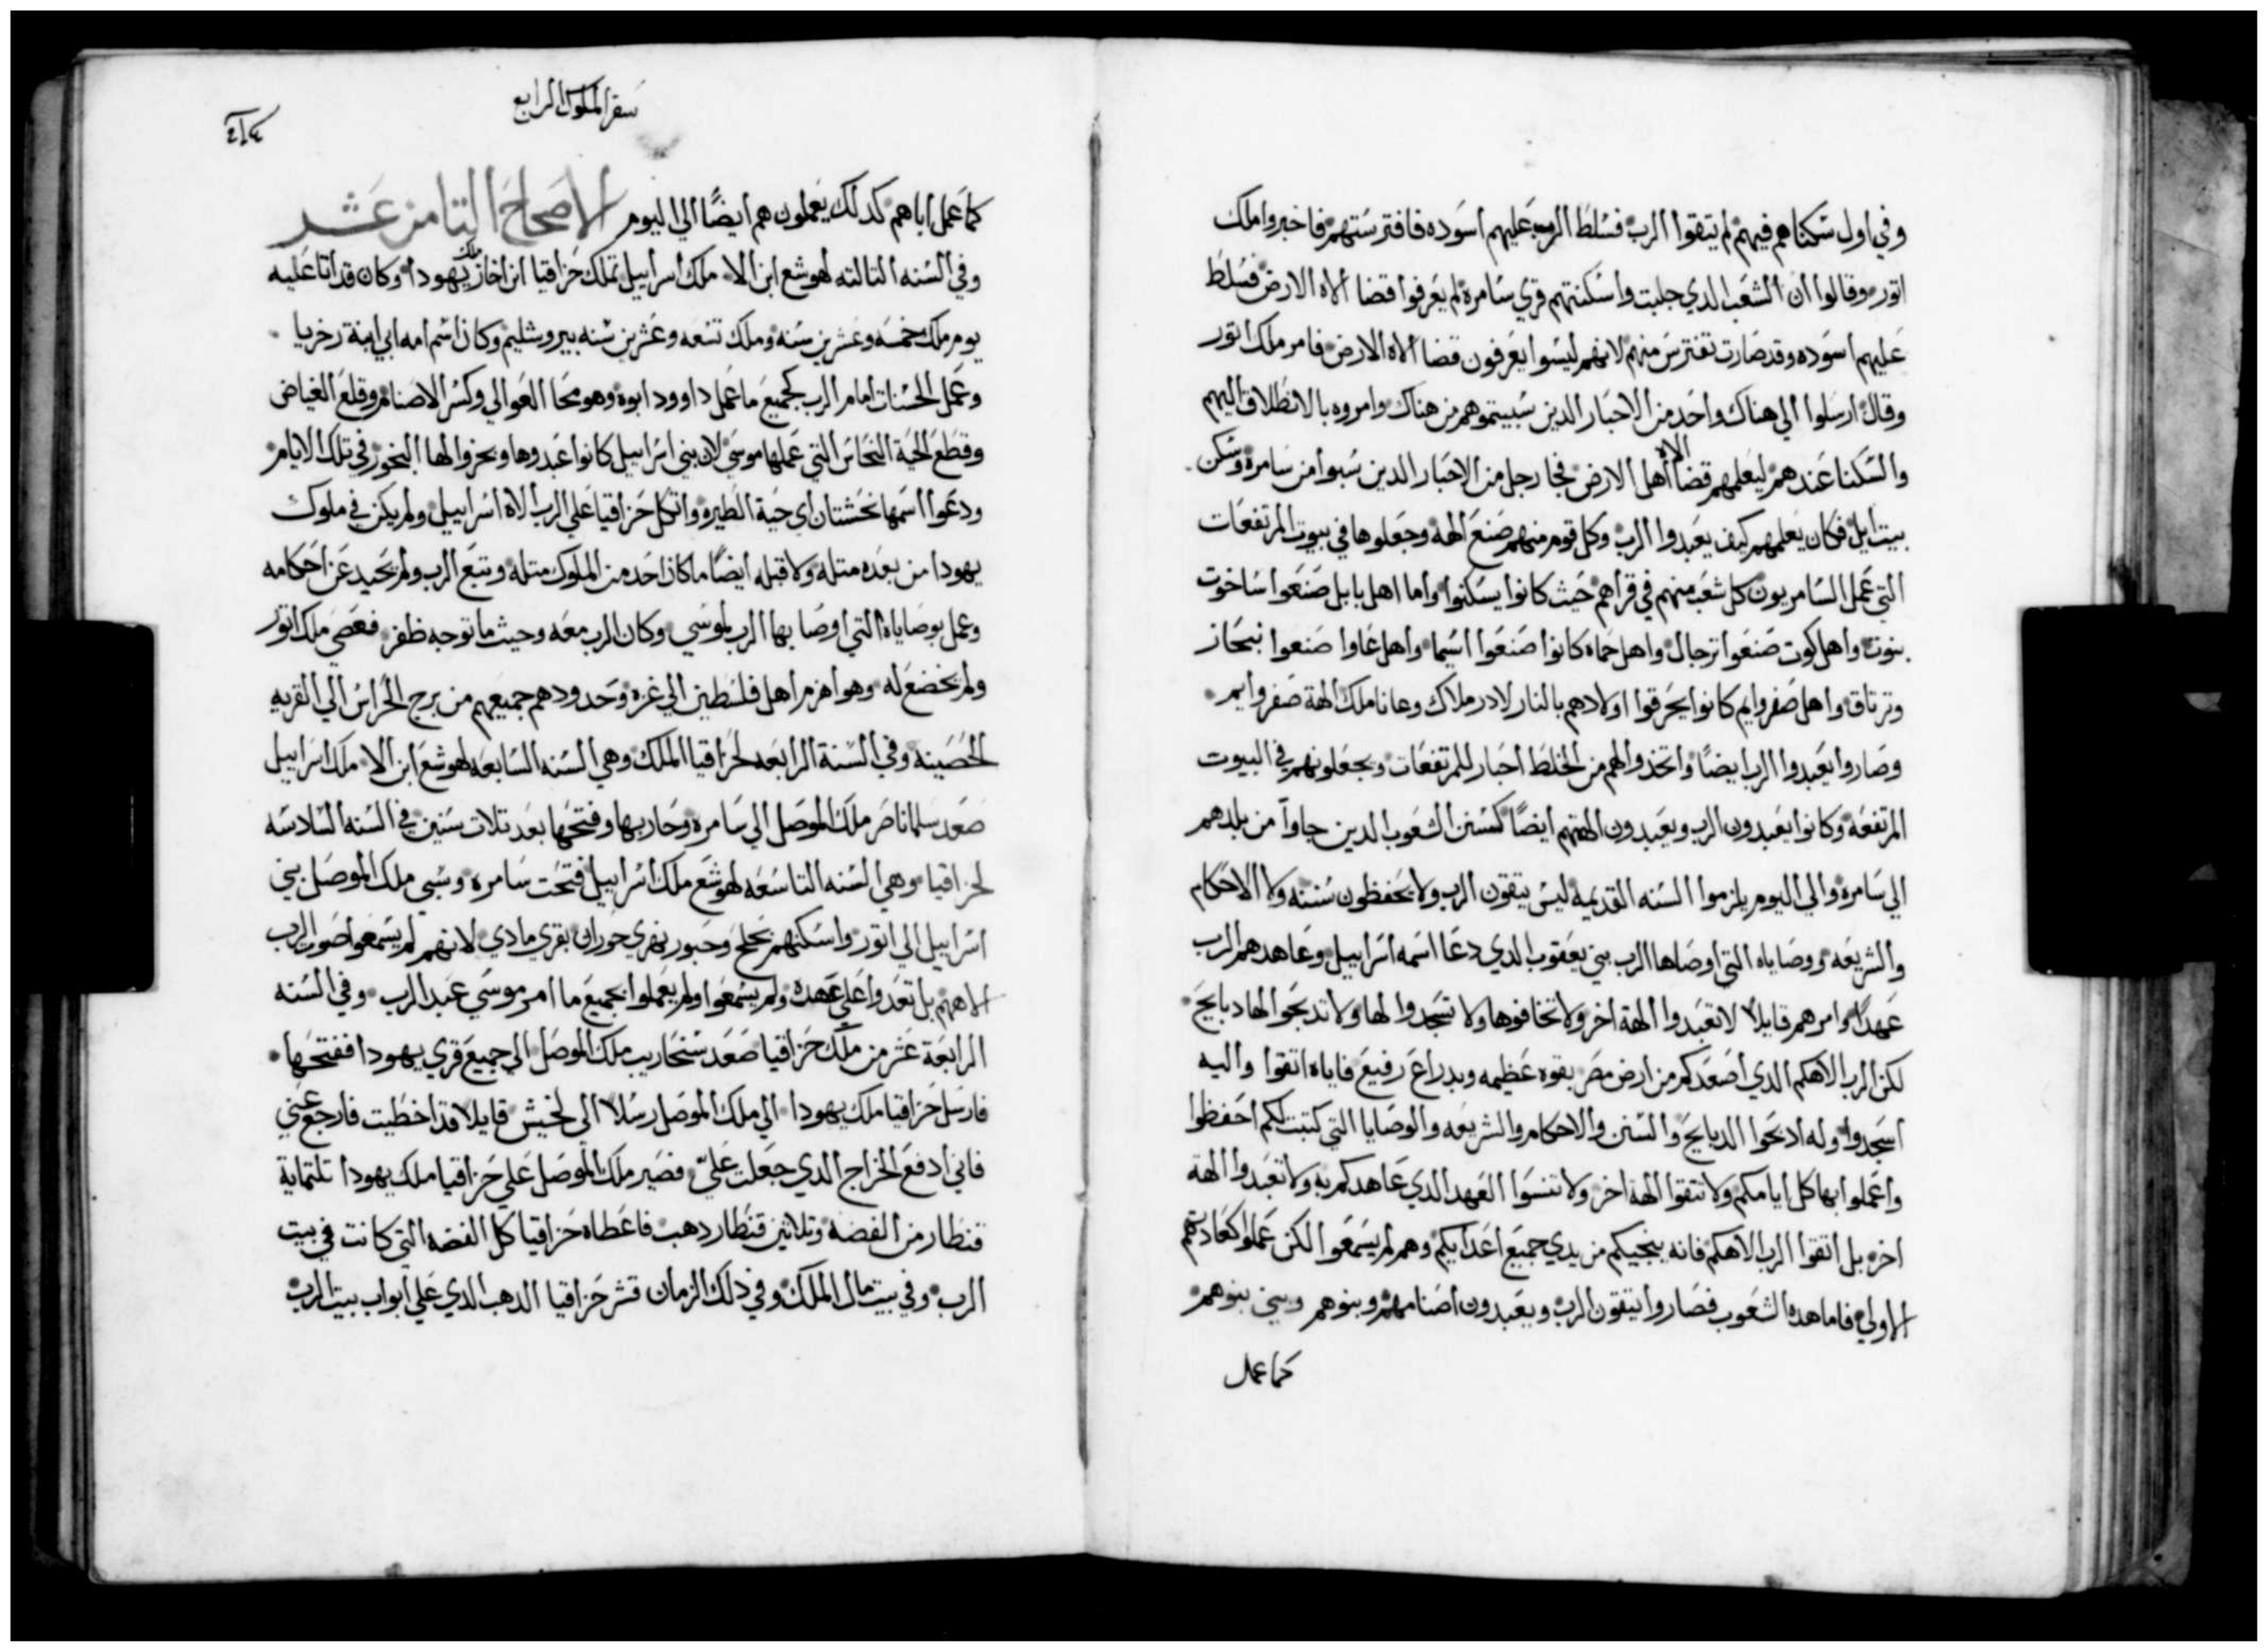 وفي اول سكناهم فيهم لم يتقوا الرب فسلط الرب عليهم اسوده فافترستهم فاخبروا ملك
اتور وقالوا ان الشعب الدي جلبت واسكنتهم قري سامرة لم يعرفوا قضا الاه الارض فسلط
عليهم اسوده وقد صارت تفترس منهم لانهم ليسوا يعرفون قضا الاه الارض فامر ملك اتور
وقال ارسلوا الي هناك واحد من الاحبار الدين سبيتموهم من هناك وامروه بالانطلاق اليهم
والسكنا عندهم ليعلمهم قضا الاه اهل الارض فجا رجل من الاحبار الدين سبوا من سامرة وسكن
بيت ايل فكان يعلمهم كيف يعبدوا الرب وكل قوم منهم صنع الهة وجعلوها في بيوت المرتفعات
التي عمل السامريون كل شعب منهم في قراهم حيث كانوا يسكنوا واما اهل بابل صنعوا ساخوت
بنوت واهل كوت صنعوا نرجال واهل حماه كانوا صنعوا اسيما واهل عاوا صنعوا نبحاز
وترتاق واهل صفروايم كانوا يحرقوا اولادهم بالنار لادرملاك وعاناملك الهة صفروايم
وصاروا يعبدوا الرب ايضًا واتخدوا لهم من الخلط احبار للمرتفعات ويجعلونهم في البيوت
المرتفعة وكانوا يعبدون الرب ويعبدون الهتهم ايضًا كسنن الشعوب الدين جاوا من بلدهم
الي سامره والي اليوم يلزموا السنه القديمه ليس يتقون الرب ولا يحفظون سننه ولا الاحكام
والشريعه ووصاياه التي اوصاها الرب بني يعقوب الدي دعا اسمه اسراييل وعاهدهم الرب
عهدًا وامرهم قايلًا لا تعبدوا الهة اخر ولا تخافوها ولا تسجدوا لها ولا تدبحوا لها دبايح
لكن الرب الاهكم الدي اصعدكم من ارض مصر بقوه عظيمه وبدراع رفيع فاياه اتقوا واليه
اسجدوا وله ادبحوا الدبايح والسنن والاحكام والشريعه والوصايا التي كتبت لكم احفظوا
واعملوا بها كل ايامكم ولا تتقوا الهة اخر ولا تنسوا العهد الدي عاهدكم به ولا تعبدوا الهة
اخره بل اتقوا الرب الاهكم فانه ينجيكم من يدي جميع اعدايكم وهم لم يسمعوا لكن عملوا كعادتهم
الاولي فاما هده الشعوب فصاروا يتقون الرب ويعبدون اصنامهم وبنوهم وبني بنوهم
كما عمل
سفر الملوك الرابع
كما عمل اباهم كدلك يعملون هم ايضًا الي اليوم الاصحاح التامن عشر
وفي السنه التالته لهوشع ابن الا ملك اسراييل تملك حزاقيا ابن اخاز ملك يهودا وكان قد اتا عليه
يوم ملك خمسه وعشرين سنه وملك تسعه وعشرين سنه بيروشليم وكان اسم امه ابي ابنة زخريا
وعمل الحسنات امام الرب كجميع ما عمل داوود ابوه وهو محا العوالي وكسر الاصنام وقلع الغياض
وقطع الحية النحاس التي عملها موسي لان بني اسراييل كانوا عبدوها وبخروا لها البخور في تلك الايام
ودعوا اسمها نحشتان اي حية الطيره واتكل حزاقيا علي الرب الاه اسراييل ولم يكن في ملوك
يهودا من بعده متله ولا قبله ايضًا ما كان احد من الملوك متله وتبع الرب ولم يحيد عن احكامه
وعمل بوصاياه التي اوصا بها الرب لموسي وكان الرب معه وحيث ما توجه ظفر فعصي ملك اتور
ولم يخضع له وهو اهزم اهل فلسطين الي غزة وحدودهم جميعهم من برج الحراس الي القريه
الحصينة وفي السنة الرابعه لحزاقيا الملك وهي السنه السابعه لهوشع ابن الا ملك اسراييل
صعد سلماناصر ملك الموصل الي سامرة وحاربها وفتحها بعد تلات سنين في السنه السادسه
لحزاقيا وهي السنه التاسعه لهوشع ملك اسراييل فتحت سامره وسبي ملك الموصل بني
اسراييل الي اتور واسكنهم بحلح وحبور نهري جوزان بقري مادي لانهم لم يسمعوا صوت الرب
الاههم بل تعدوا علي عهده ولم يسمعوا ولم يعملوا بجميع ما امر موسي عبد الرب وفي السنه
الرابعة عشر من ملك حزاقيا صعد سنحاريب ملك الموصل الي جميع قري يهودا ففتحها
فارسل حزاقيا ملك يهودا الي ملك الموصل رسلا الي لخيش قايلا قد اخطيت فارجع عني
فاني ادفع الخراج الدي جعلت عليّ فصير ملك الموصل علي حزاقيا ملك يهودا تلتماية
قنطار من الفضة وتلاتين قنطار دهب فاعطاه حزاقيا كل الفضه التي كانت في بيت
الرب وفي بيت مال الملك وفي دلك الزمان قشر حزاقيا الدهب الدي علي ابواب بيت الرب